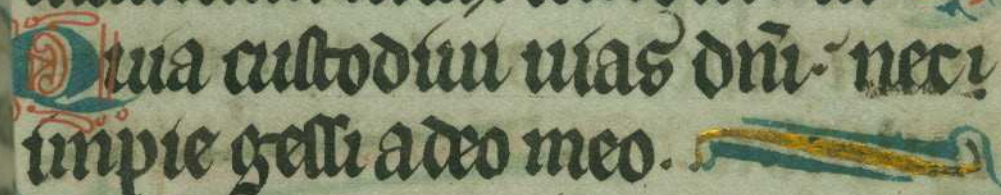 Quia custodiui uias dñi· nec i
impie gessi a deo meo.